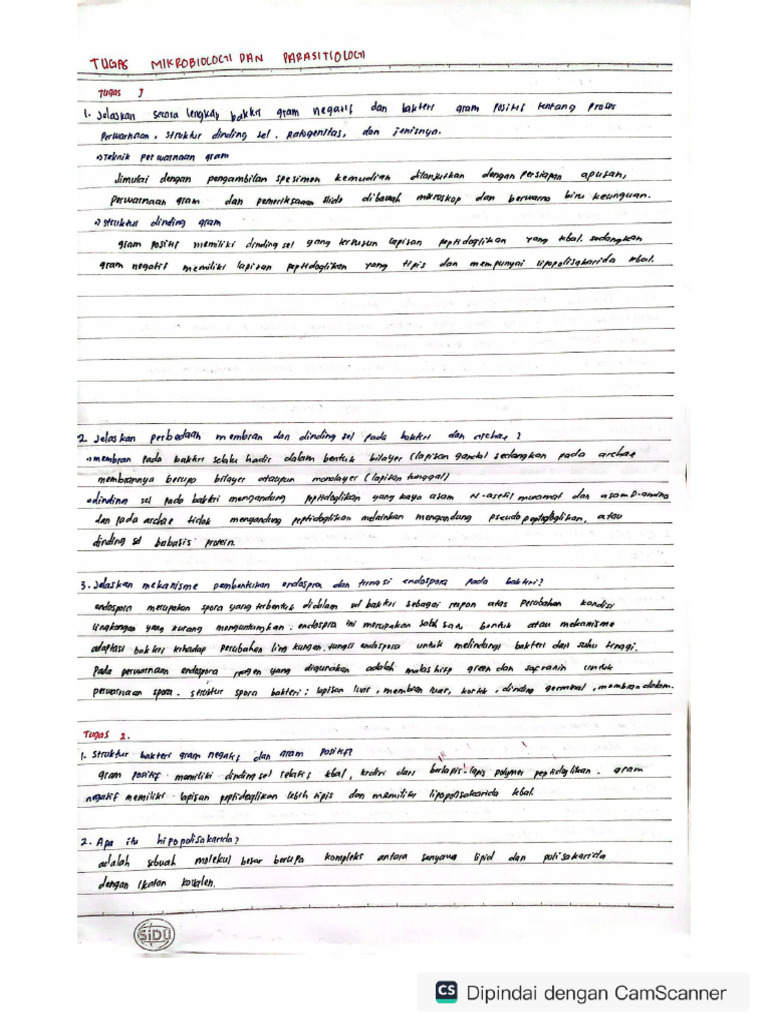 TUGAS MIKROBIOLOGI DAN PARASITIOLOGI
TUGAS 1
1. Jelaskan secara lengkap bakteri gram negatif dan bakteri gram positif tentang proses
perwarnaan, struktur dinding sel, patogenitas, dan jenisnya.
teknik perwarnaan gram
dimulai dengan pengambilan spesimen kemudian dilanjutkan dengan persiapan apusan,
perwarnaan gram dan pemeriksaan slide dibawah mikroskop dan berwarna biru keunguan.
struktur dinding gram
gram positif memiliki dinding sel yang tersusun lapisan peptidoglikan yang tebal. sedangkan
gram negatif memiliki lapisan peptidoglikan yang tipis dan mempunyai lipopolisakarida tebal.
2. Jelaskan perbedaan membran dan dinding sel pada bakteri dan archae ?
membran pada bakteri selalu hadir dalam bentuk bilayer (lapisan ganda) sedangkan pada archae
membrannya berupa bilayer ataupun monolayer (lapisan tunggal)
dinding sel pada bakteri mengandung peptidoglikan yang kaya asam N-asetil muramat dan asam D-amino
dan pada archae tidak mengandung peptidoglikan melainkan mengandung pseudopeptidoglikan, atau
dinding sel babasis protein.
3. Jelaskan mekanisme pembentukan endospora dan fungsi endospora pada bakteri?
endospora merupakan spora yang terbentuk didalam sel bakteri sebagai respon atas perubahan kondisi
lingkungan yang kurang menguntungkan. endospora ini merupakan salah satu bentuk atau mekanisme
adaptasi bakteri terhadap perubahan lingkungan. fungsi endospora untuk melindungi bakteri dari suhu tinggi.
Pada perwarnaan endospora reagen yang digunakan adalah green dan safranin untuk
perwarnaan spora. struktur spora bakteri : lapisan luar, membran luar, kortek, dinding germinal, membran dalam.
TUGAS 2.
1. Struktur bakteri gram negatif dan gram positif?
gram positif memiliki dinding sel relatif tebal, terdiri dari berlapis-lapis polymer peptidoglikan. gram
negatif memiliki lapisan peptidoglikan lebih tipis dan memiliki lipopolisakarida tebal.
2. Apa itu hipopolisakarida?
adalah sebuah molekul besar berupa kompleks antara senyawa lipid dan polisakarida
dengan ikatan kovalen.
SIDU
CS Dipindai dengan CamScanner